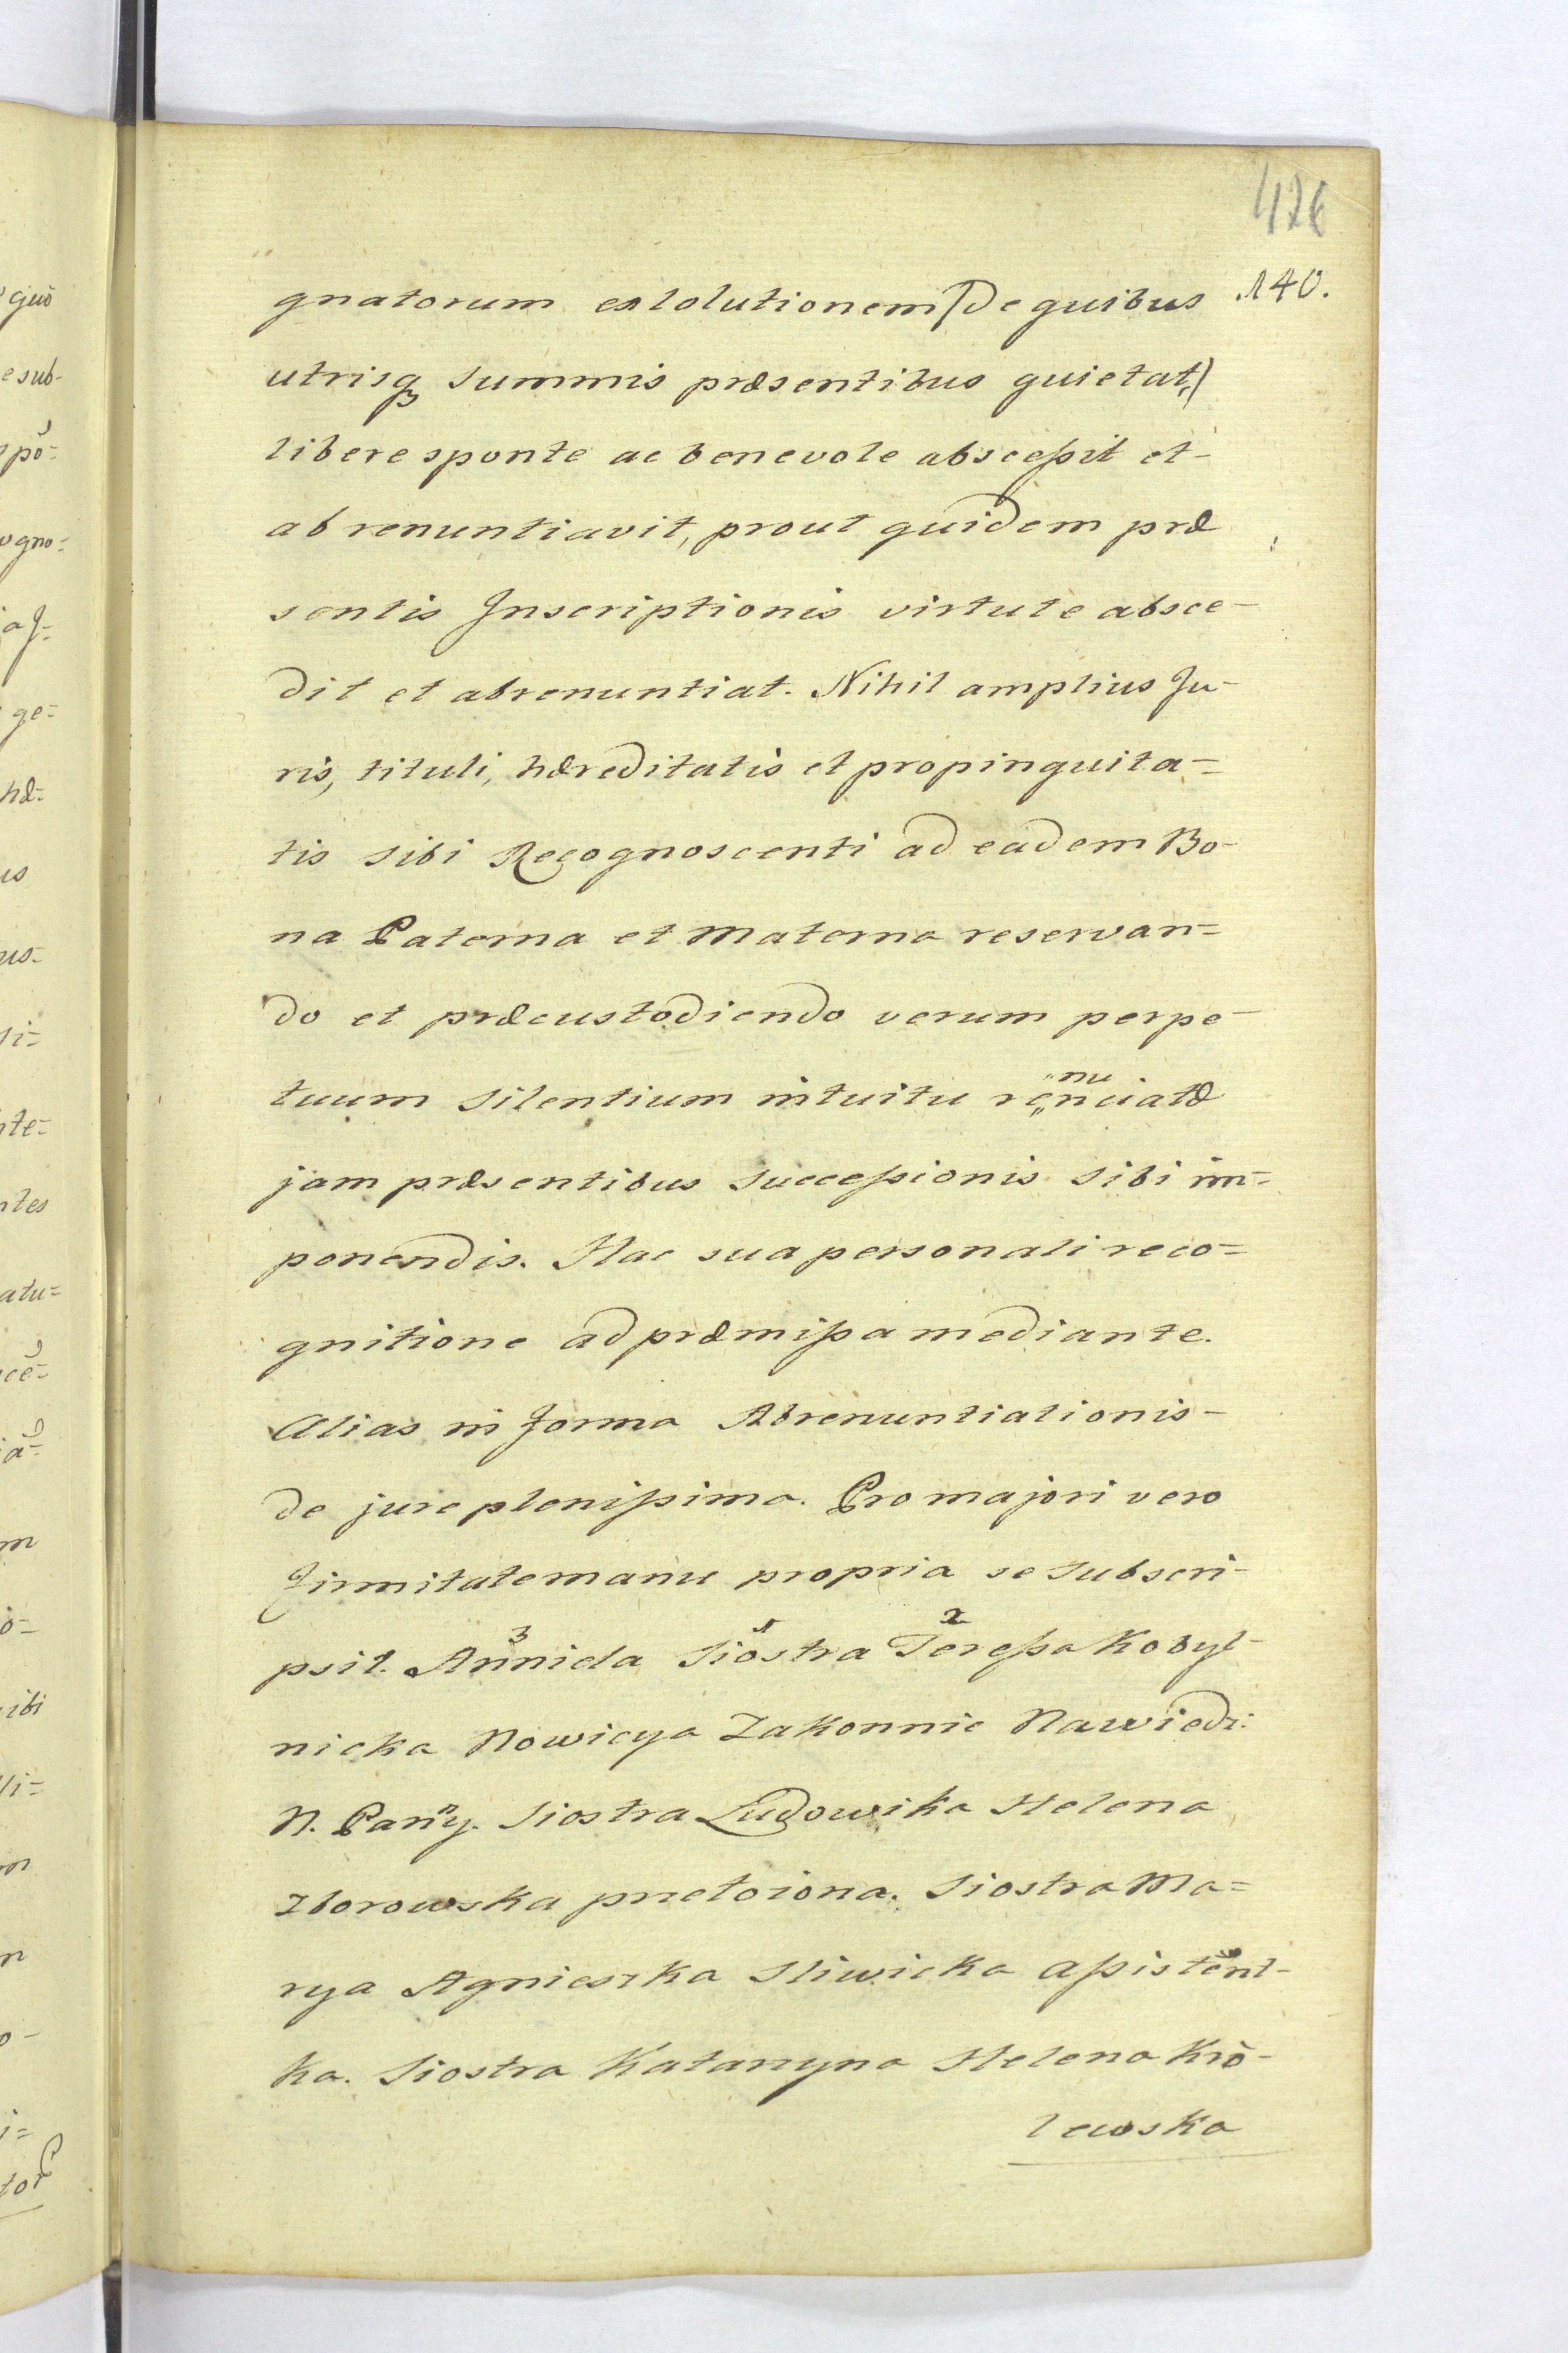 426
140.
gnatorum exsolutionem (de quibus
utrisq₃ summis præsentibus quietat,)
libere sponte ac benevole abscessit et-
abrenuntiavit, prout quidem præ
sentis Inscriptionis virtute absce-
dit et abrenuntiat. Nihil amplius Ju-
ris, tituli, hæreditatis et propinquita=
tis sibi Recognoscenti ad eadem Bo-
na Paterna et Materna reservan=
do et præcustodiendo verum perpe-
tuum silentium intuitu renunciatæ
jam præsentibus successionis sibi im=
ponendis. Hac sua personali reco=
gnitione ad præmissa mediante.
Alias in forma Abrenuntiationis-
de jure plenissima. Pro majori vero
firmitate manu propria se subscri-
psit. Anniela Siostra Teressa Kobyl-
3 1 2
nicka Nowicya Zakonnic Nawiedz:
N. Panny. Siostra Ludowika Helena
Zborowska przełożona. Siostra Ma=
rya Agnieszka Sliwicka assistent-
ka. Siostra Katarzyna Helena Kró-
lewska
quò
e sub-
pō=
ogno=
ge=
hæ=
us
us-
si=
nte=
ntes
atu=
cē=
iā=
m
ò-
ibi
li=
m
n
o-
i=